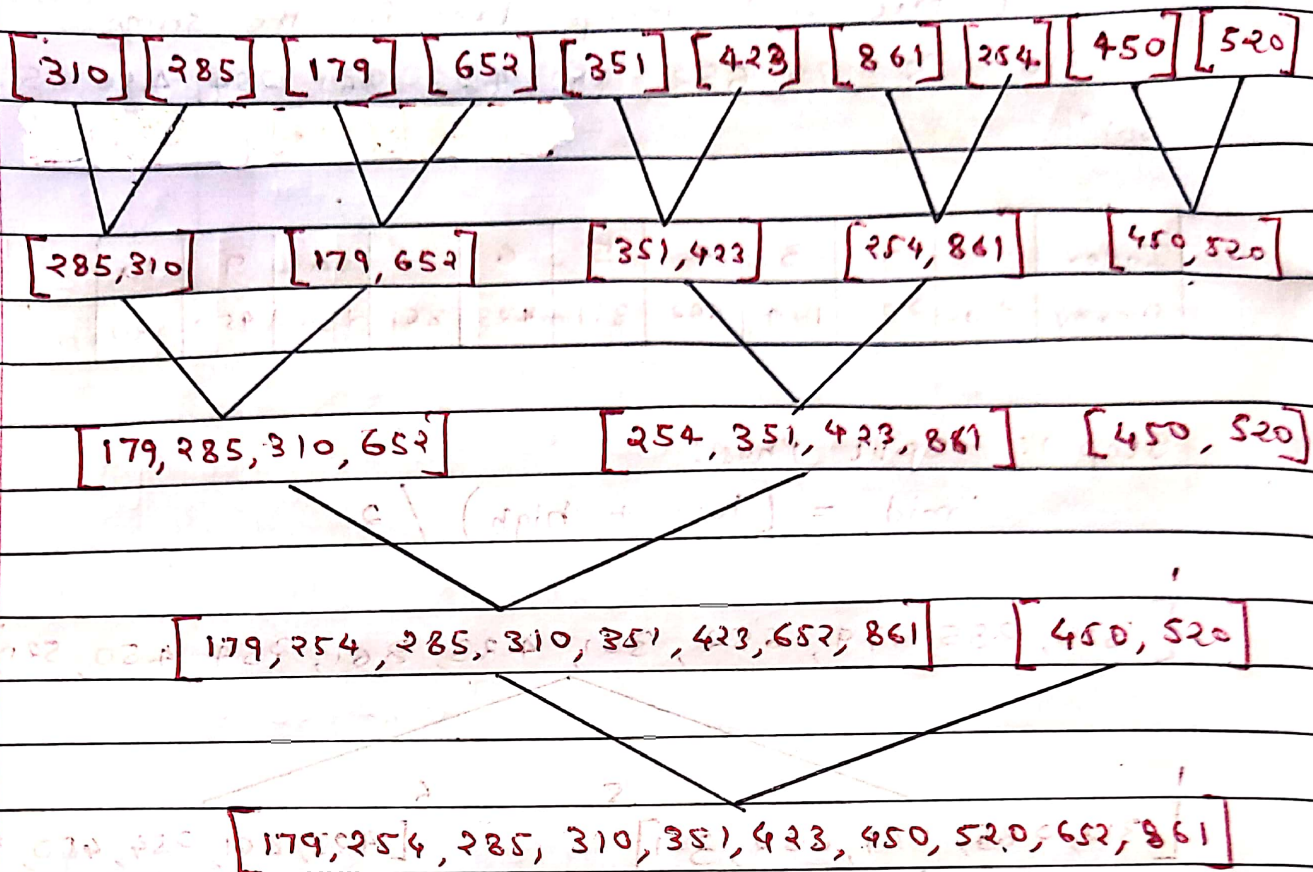 [310] [285] [179] [652] [351] [423] [861] [254] [450] [520]
[285,310] [179,652] [351,423] [254,861] [450,520]
[179,285,310,652] [254,351,423,861] [450,520]
[179,254,285,310,351,423,652,861] [450,520]
[179,254,285,310,351,423,450,520,652,861]